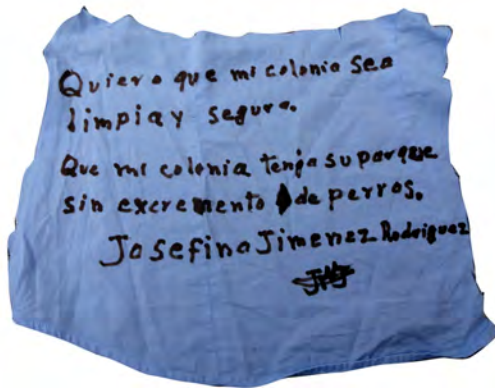 Quiero que mi colonia sea
limpia y segura.
Que mi colonia tenga su parque
sin excremento de perros.
Josefina Jimenez Rodriguez